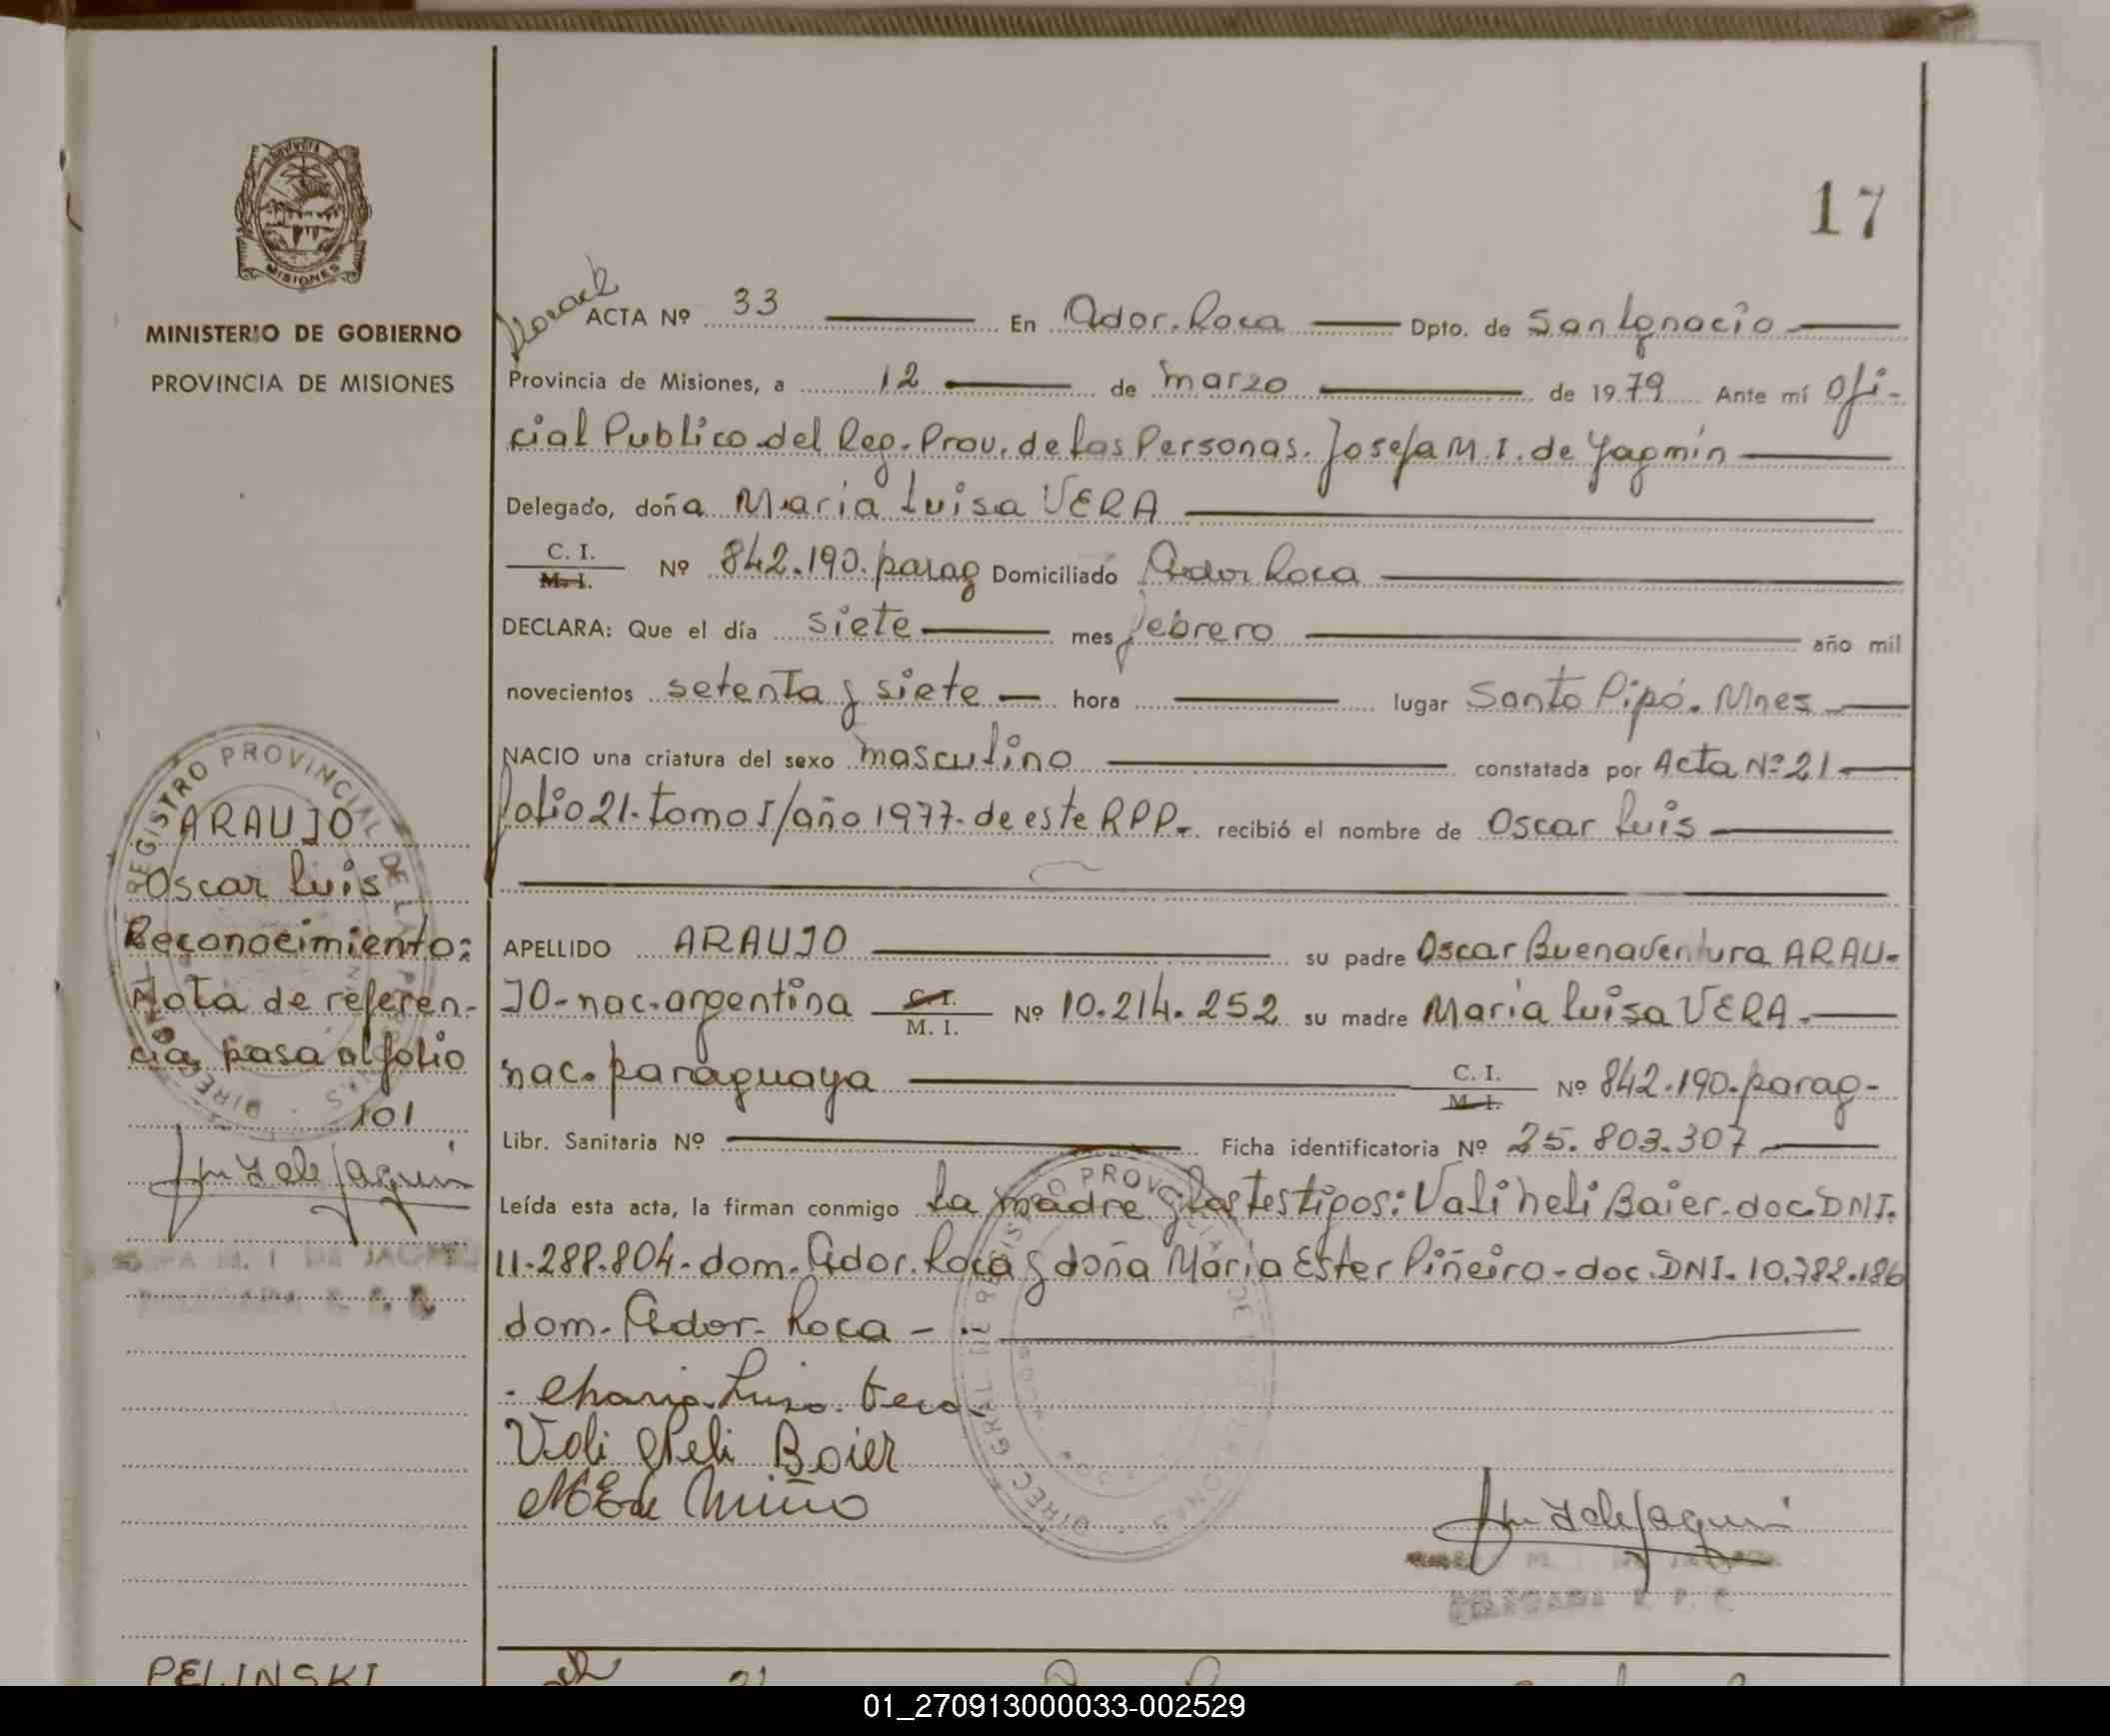 17
MISIONES
MINISTERIO DE GOBIERNO
PROVINCIA DE MISIONES
ARAUJO
Oscar Luis
Reconocimiento:
Nota de referen-
cia, pasa al folio
101
ACTA Nº 33 En Ador. Roca Dpto. de San Ignacio
Provincia de Misiones, a 12 de marzo de 1979 Ante mí Ofi-
cial Publico del Reg. Prov. de las Personas. Josefa M. I. de Yagmin
Delegado, doña Maria Luisa VERA
C. I. M. I. Nº 842.190. parag Domiciliado Ador Roca
DECLARA: Que el día siete mes febrero año mil
novecientos setenta y siete hora lugar Santo Pipó. Mnes
NACIO una criatura del sexo masculino constatada por Acta Nº 21
folio 21. tomo I/año 1977. de este RPP. recibió el nombre de Oscar Luis
APELLIDO ARAUJO su padre Oscar Buenaventura ARAU-
JO- nac. argentina C. I. M. I. Nº 10.214.252 su madre Maria Luisa VERA.
nac. paraguaya C. I. M. I. Nº 842.190. parag-
Libr. Sanitaria Nº Ficha identificatoria Nº 25.803.307
Leída esta acta, la firman conmigo la madre y los testigos: Vali neli Baier. doc. DNI.
11.288.804. dom. Ador. Roca y doña Maria Ester Piñeiro- doc. DNI. 10.782.186
dom. Ador. Roca -.
Maria Luisa Vera
Vali Neli Baier
M E de Miño
PELINSKI
01_270913000033-002529